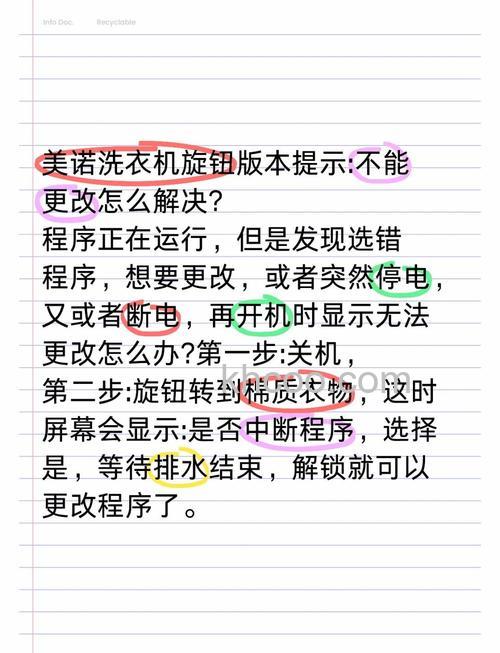 Info Doc. Recyclable
美诺洗衣机旋钮版本提示:不能
更改怎么解决?
程序正在运行，但是发现选错
程序，想要更改，或者突然停电，
又或者断电，再开机时显示无法
更改怎么办?第一步:关机，
第二步:旋钮转到棉质衣物，这时
屏幕会显示:是否中断程序，选择
是，等待排水结束，解锁就可以
更改程序了。
khcoo.com